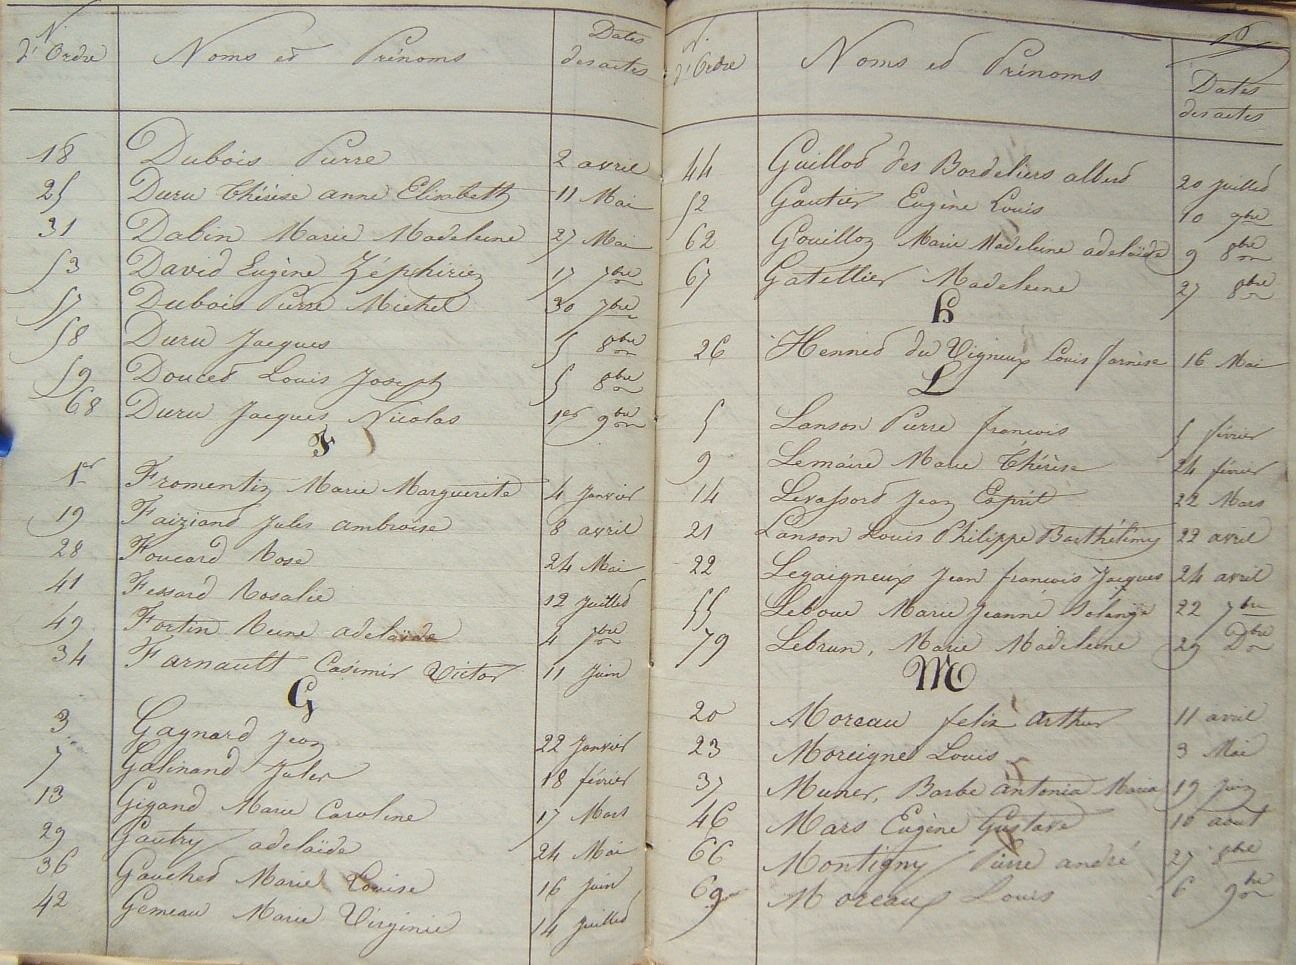 N.
d'Ordre Noms et Prénoms Dates
des actes
18 Dubois Pierre 2 avril
25 Duru Thérèse anne Elisabeth 11 Mai
31 Dabin Marie Madeleine 27 Mai
53 David Eugène Zéphirin 17 7bre
57 Dubois Pierre Michel 30 7bre
58 Duru Jacques 5 8bre
59 Doucet Louis Joseph 5 8bre
68 Duru Jacques Nicolas 1er 9bre
F
1er Fromentin Marie Marguerite 4 Janvier
19 Jules ambroise 8 avril
28 Foucard Rose 24 Mai
41 Fessard Rosalie 12 Juillet
49 Fortin Reine adelaïde 4 7bre
34 Farnault Casimir Victor 11 Juin
G
3 Gagnard Jean 22 Janvier
7 Galinand Jules 18 février
13 Gigand Marie Caroline 17 Mars
29 Gautry adelaïde 24 Mai
36 Gauchet Marie Louise 16 Juin
42 Gemeau Marie Virginie 14 Juillet
N.
d'Ordre Noms et Prénoms Dates
des actes
44 Guillot des Bordeliers albert 20 Juillet
52 Gautier Eugène Louis 10 7bre
62 Gouillon Marie Madeleine adelaïde 9 8bre
67 Gatellier Madeleine 27 8bre
H
26 Hennet du Vigneux Louis 16 Mai
L
5 Lanson Pierre françois 5 février
9 Lemaire Marie Thérèse 24 février
14 Levassord Jean Esprit 22 Mars
21 Lanson Louis Philippe Barthélémy 22 avril
22 Legaigneux Jean françois Jacques 24 avril
55 Leboue Marie Jeanne Solange 22 7bre
79 Lebrun, Marie Madeleine 29 Dbre
M
20 Moreau felix arthur 11 avril
23 Moreigne Louis 3 Mai
37 Muner, Barbe antonia Maria 19 Juin
46 Mars Eugène Gustave 10 aout
66 Montigny Pierre andré 27 8bre
69 Moreau Louis 6 9bre